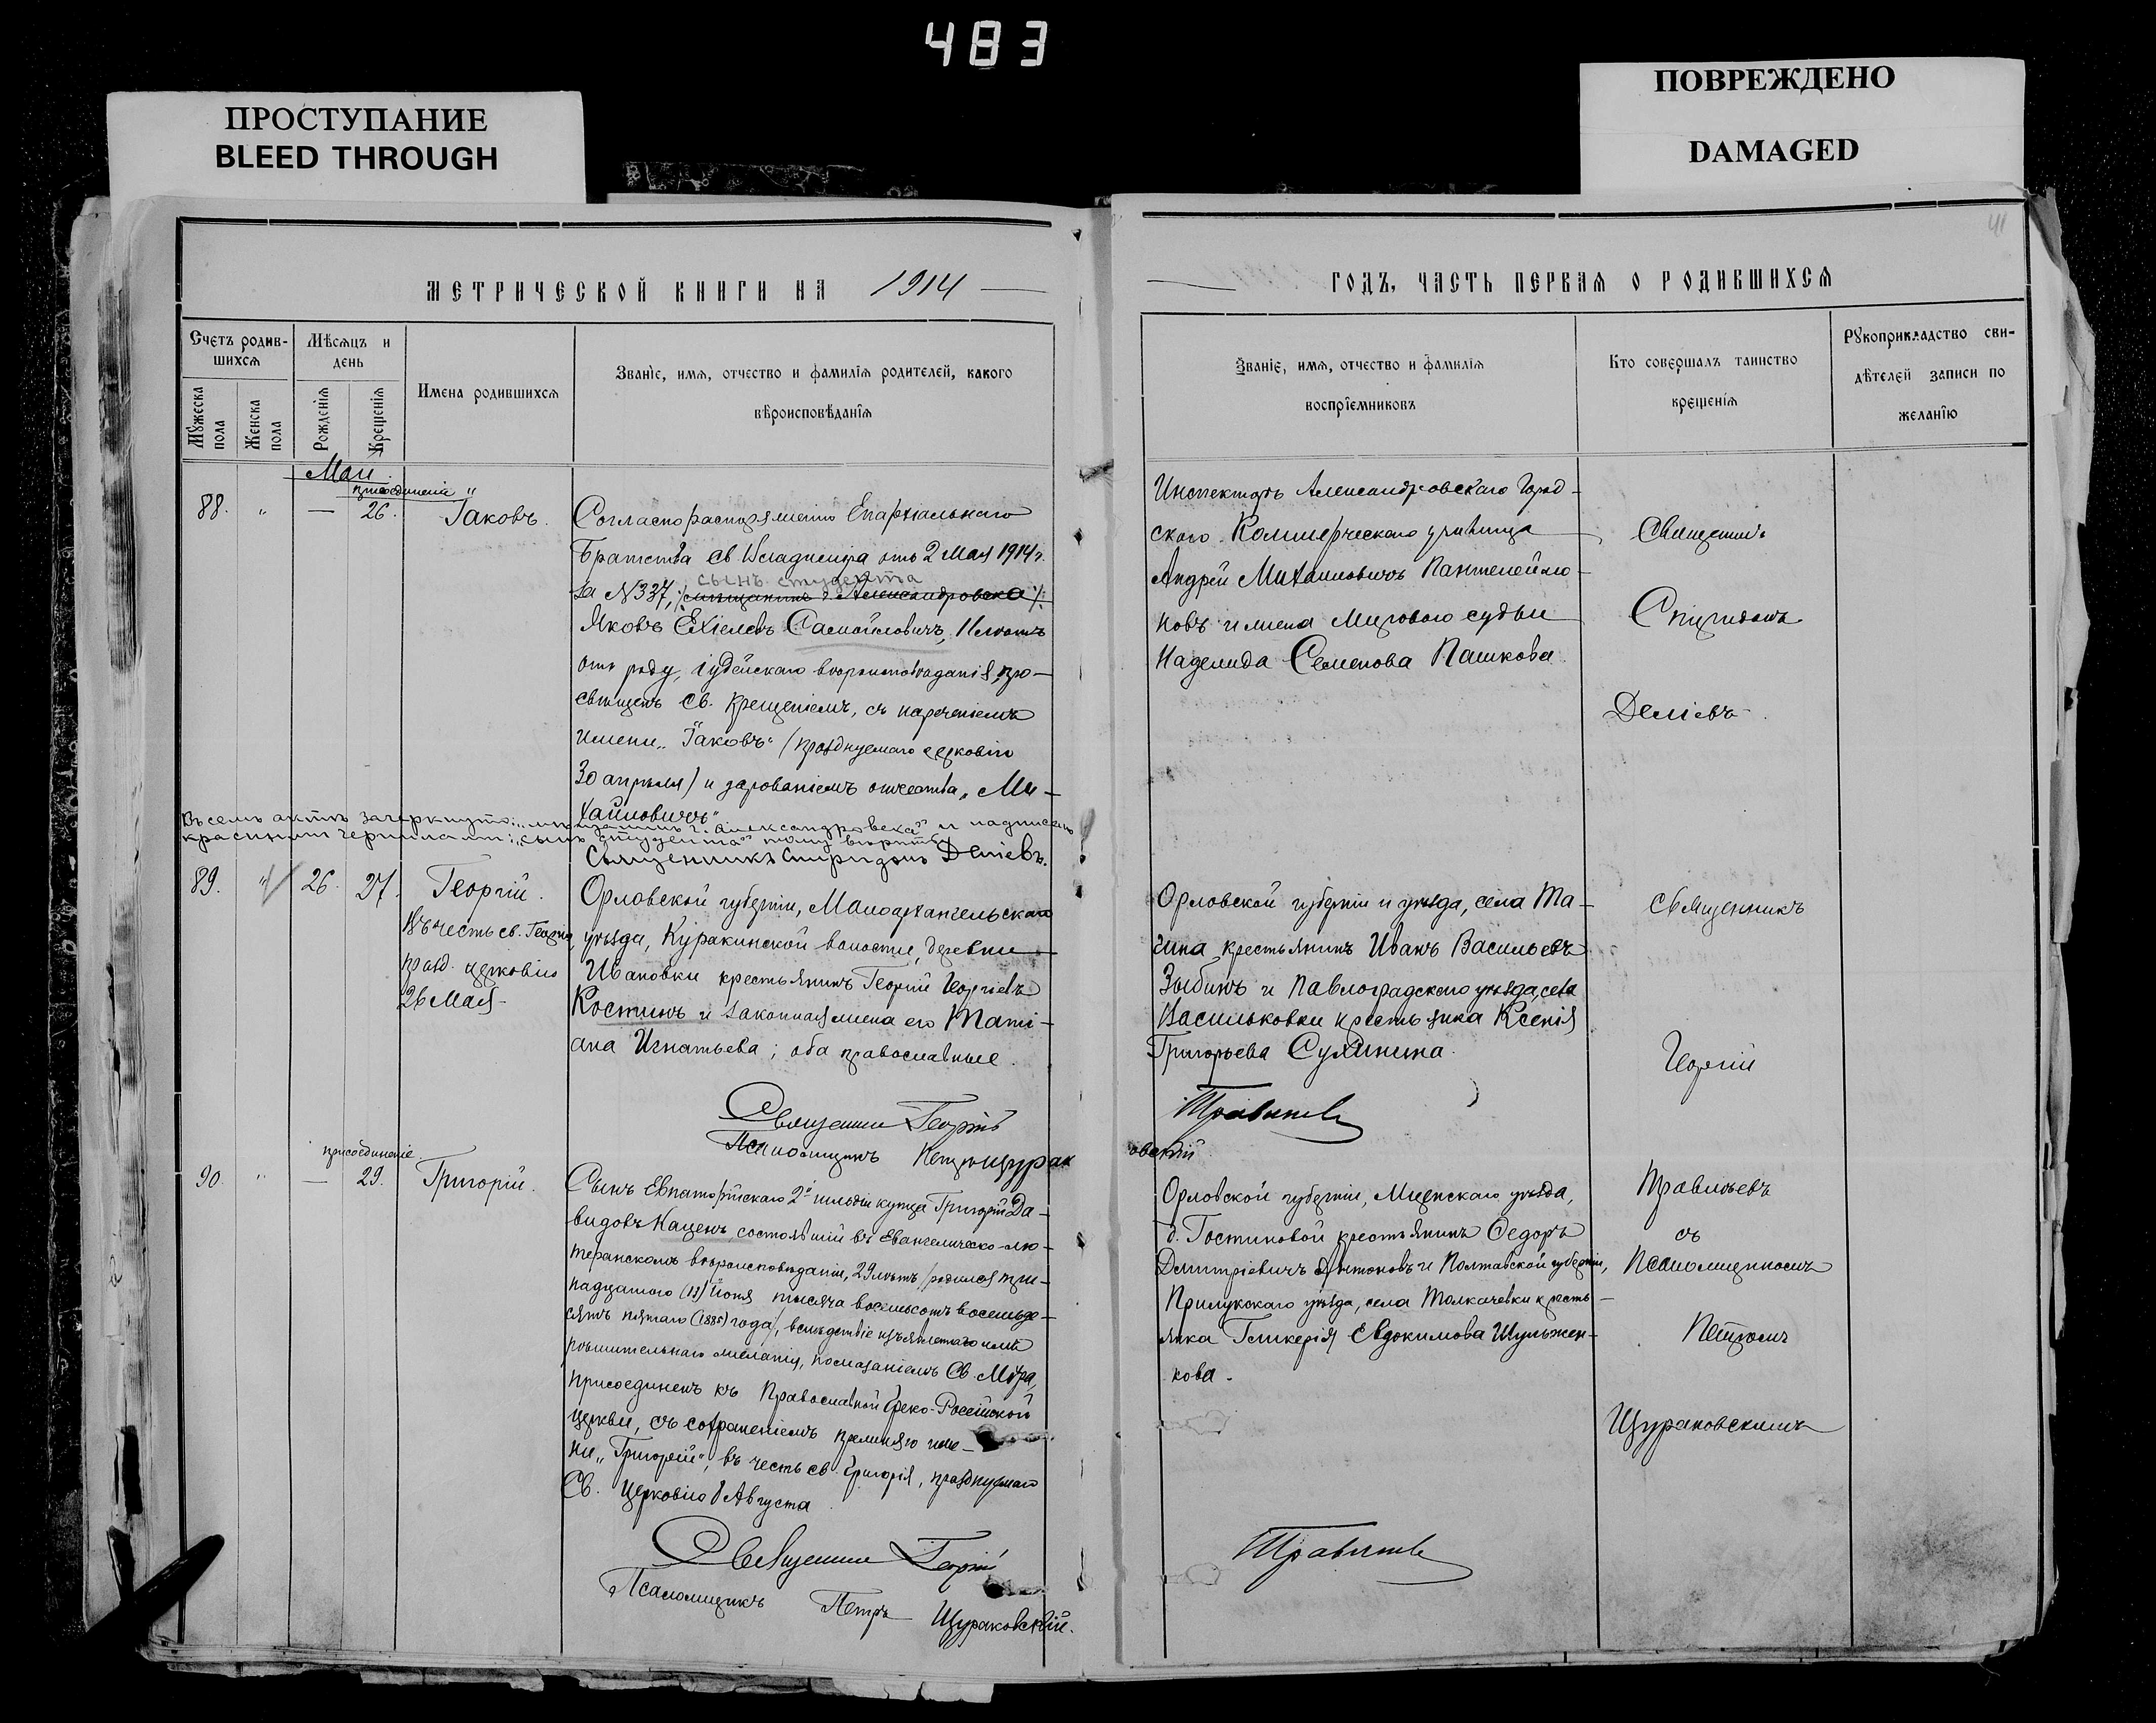 483
ПРОСТУПАНИЕ
BLEED THROUGH
ПОВРЕЖДЕНО
DAMAGED
41
МЕТРИЧЕСКОЙ КНИГИ НА 1914
Счетъ родив-
шихся
Мѣсяцъ и
день
Имена родившихся
Званіе, имя, отчество и фамилія родителей, какого
вѣроисповѣданія
Мужеска
пола
Женска
пола
Рожденія
Крещенія
Май
присоединенія
88. " — 26. Іаковъ.
Согласно распоряженію Епархіальнаго
Братства св. Владиміра отъ 2 Мая 1914 г.
сынъ студента
за №337, мѣщанинъ г. Александровска
Яковъ Ехіелевъ Самойловичъ,
отъ роду, іудейскаго вѣроисповѣданія, про-
свѣщенъ Св. Крещеніемъ, съ нареченіемъ
имени „Іаковъ" (празднуемаго церковію
30 апрѣля) и дарованіемъ отчества „Ми-
хайловичъ"
Въ семъ актѣ зачеркнуто: „мѣщанинъ г. Александровска" и надписано
красными чернилами: „сынъ студента" тому вѣрить
Священникъ Спиридонъ Деміевъ.
89. " 26. 27. Георгій.
Въ честь св. Георгія,
празд. церковію
26 Мая
Орловской губерніи, Малоархангельскаго
уѣзда, Куракинской волости, деревни
Ивановки крестьянинъ Георгій Георгіевъ
Костинъ и законная жена его Таті-
ана Игнатьева; оба православные.
Священникъ Георгій
Псаломщикъ Петръ Щурак
присоединеніе
90. " — 29. Григорій.
Сынъ Евпаторійскаго 2й гильдіи купца Григорій Да-
видовъ Каценъ, состоявшій въ Евангелическо-лю-
теранскомъ вѣроисповѣданіи, 29 лѣтъ, (родился три-
надцатого (13) Іюня тысяча восемьсотъ восемьде-
сятъ пятаго (1885) года), вслѣдствіе изъявленнаго имъ
рѣшительнаго желанія, помазаніемъ Св. Мѵра,
присоединенъ къ Православной Греко-Россійской
церкви, съ сохраненіемъ прежняго име-
ни „Григорій", въ честь св. Григорія, празднуемаго
Св. Церковію 8 Августа.
Священникъ Георгій
Псаломщикъ Петръ Щураковскій.
ГОДЪ, ЧАСТЬ ПЕРВАЯ О РОДИВШИХСЯ
Званіе, имя, отчество и фамилія
воспріемниковъ
Кто совершалъ таинство
крещенія
Рукоприкладство сви-
дѣтелей записи по
желанію
Инспекторъ Александровскаго Город-
ского Коммерческаго училища
Андрей Михаиловичъ Пантелеймо-
новъ и жена Мирового судьи
Надежда Семенова Пашкова.
Священникъ
Спиридонъ
Деміевъ.
Орловской губерніи и уѣзда, села Та-
гина, крестьянинъ Иванъ Васильевъ
Зыбинъ и Павлоградскаго уѣзда, села
Васильковки крестьянка Ксенія
Григорьева Сухинина.
Травинъ
овскій
Священникъ
Георгій
Орловской губерніи, Мценскаго уѣзда,
д. Гостиновой крестьянинъ Ѳедоръ
Димитріевичъ Антоновъ и Полтавской губерніи,
Прилукскаго уѣзда, села Толкачевки кресть-
янка Гликерія Евдокимова Шульжен-
кова.
съ
Псаломщикомъ
Петромъ
Щураковскимъ